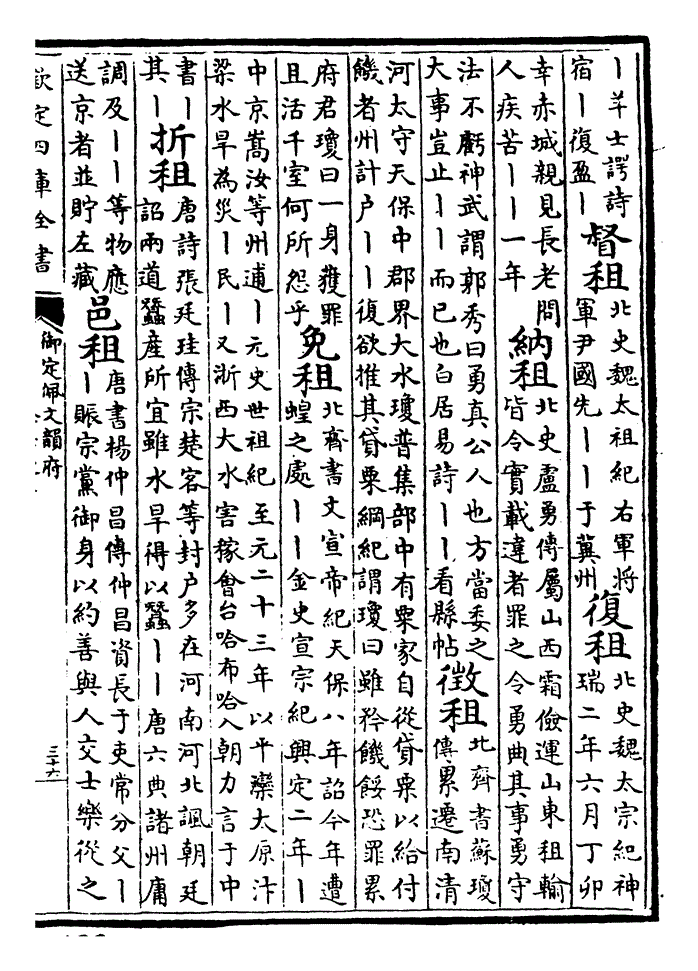 丨羊士諤詩
宿丨復盈丨
督租
北史魏太祖紀右軍將
軍尹國先丨丨于冀州
復租
北史魏太宗紀神
瑞二年六月丁卯
幸赤城親見長老問
人疾苦丨丨一年
納租
北史盧勇傳屬山西霜儉運山東租輸
皆令實載違者罪之令勇典其事勇守
法不虧神武謂郭秀曰勇真公人也方當委之
大事豈止丨丨而已也白居易詩丨丨看縣帖
徵租
北齊書蘇瓊
傳累遷南清
河太守天保中郡界大水瓊普集部中有粟家自從貸粟以給付
饑者州計户丨丨復欲推其貸粟綱紀謂瓊曰雖矜饑餒恐罪累
府君瓊曰一身獲罪
且活千室何所怨乎
免租
北齊書文宣帝紀天保八年詔今年遭
蝗之處丨丨金史宣宗紀興定二年丨
中京嵩汝等州逋丨元史世祖紀至元二十三年以平灤太原汴
梁水旱為災丨民丨又浙西大水害稼會台哈布哈入朝力言于中
書丨
其丨
折租
唐詩張廷珪傳宗楚客等封户多在河南河北諷朝廷
詔兩道蠶産所宜雖水旱得以蠶丨丨唐六典諸州庸
調及丨丨等物應
送京者並貯左藏
邑租
唐書楊仲昌傳仲昌資長于吏常分父丨
丨賑宗黨御身以約善與人交士樂從之
欽定四庫全書
御定佩文韻府
三十六